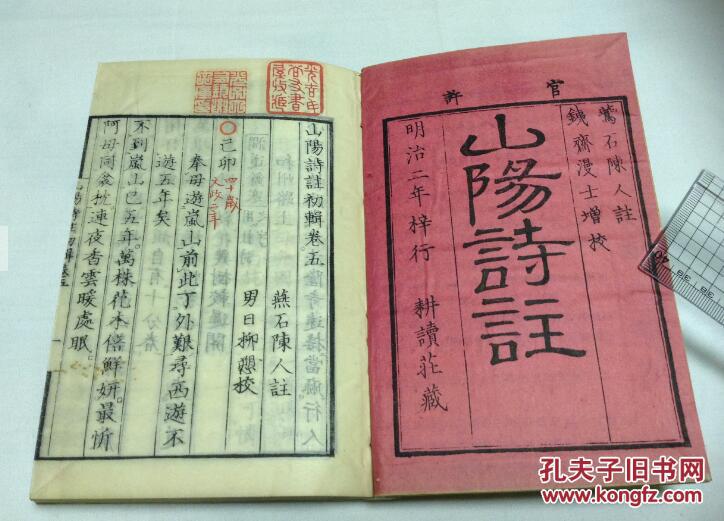 官許
燕石陳人註
鐵齋漫士增挍
山陽詩註
明治二年梓行 耕讀莊藏
山陽詩註初輯卷五
燕石陳人註
男日柳 挍
己卯
四十歲
文政二年
奉母遊嵐山前此丁外艱尋西遊不
遊五年矣
不到嵐山已五年。萬株花木倍鮮妍。最忻
阿母同衾枕連夜香雲暖處眠。
孔夫子旧书网
www.kongfz.com